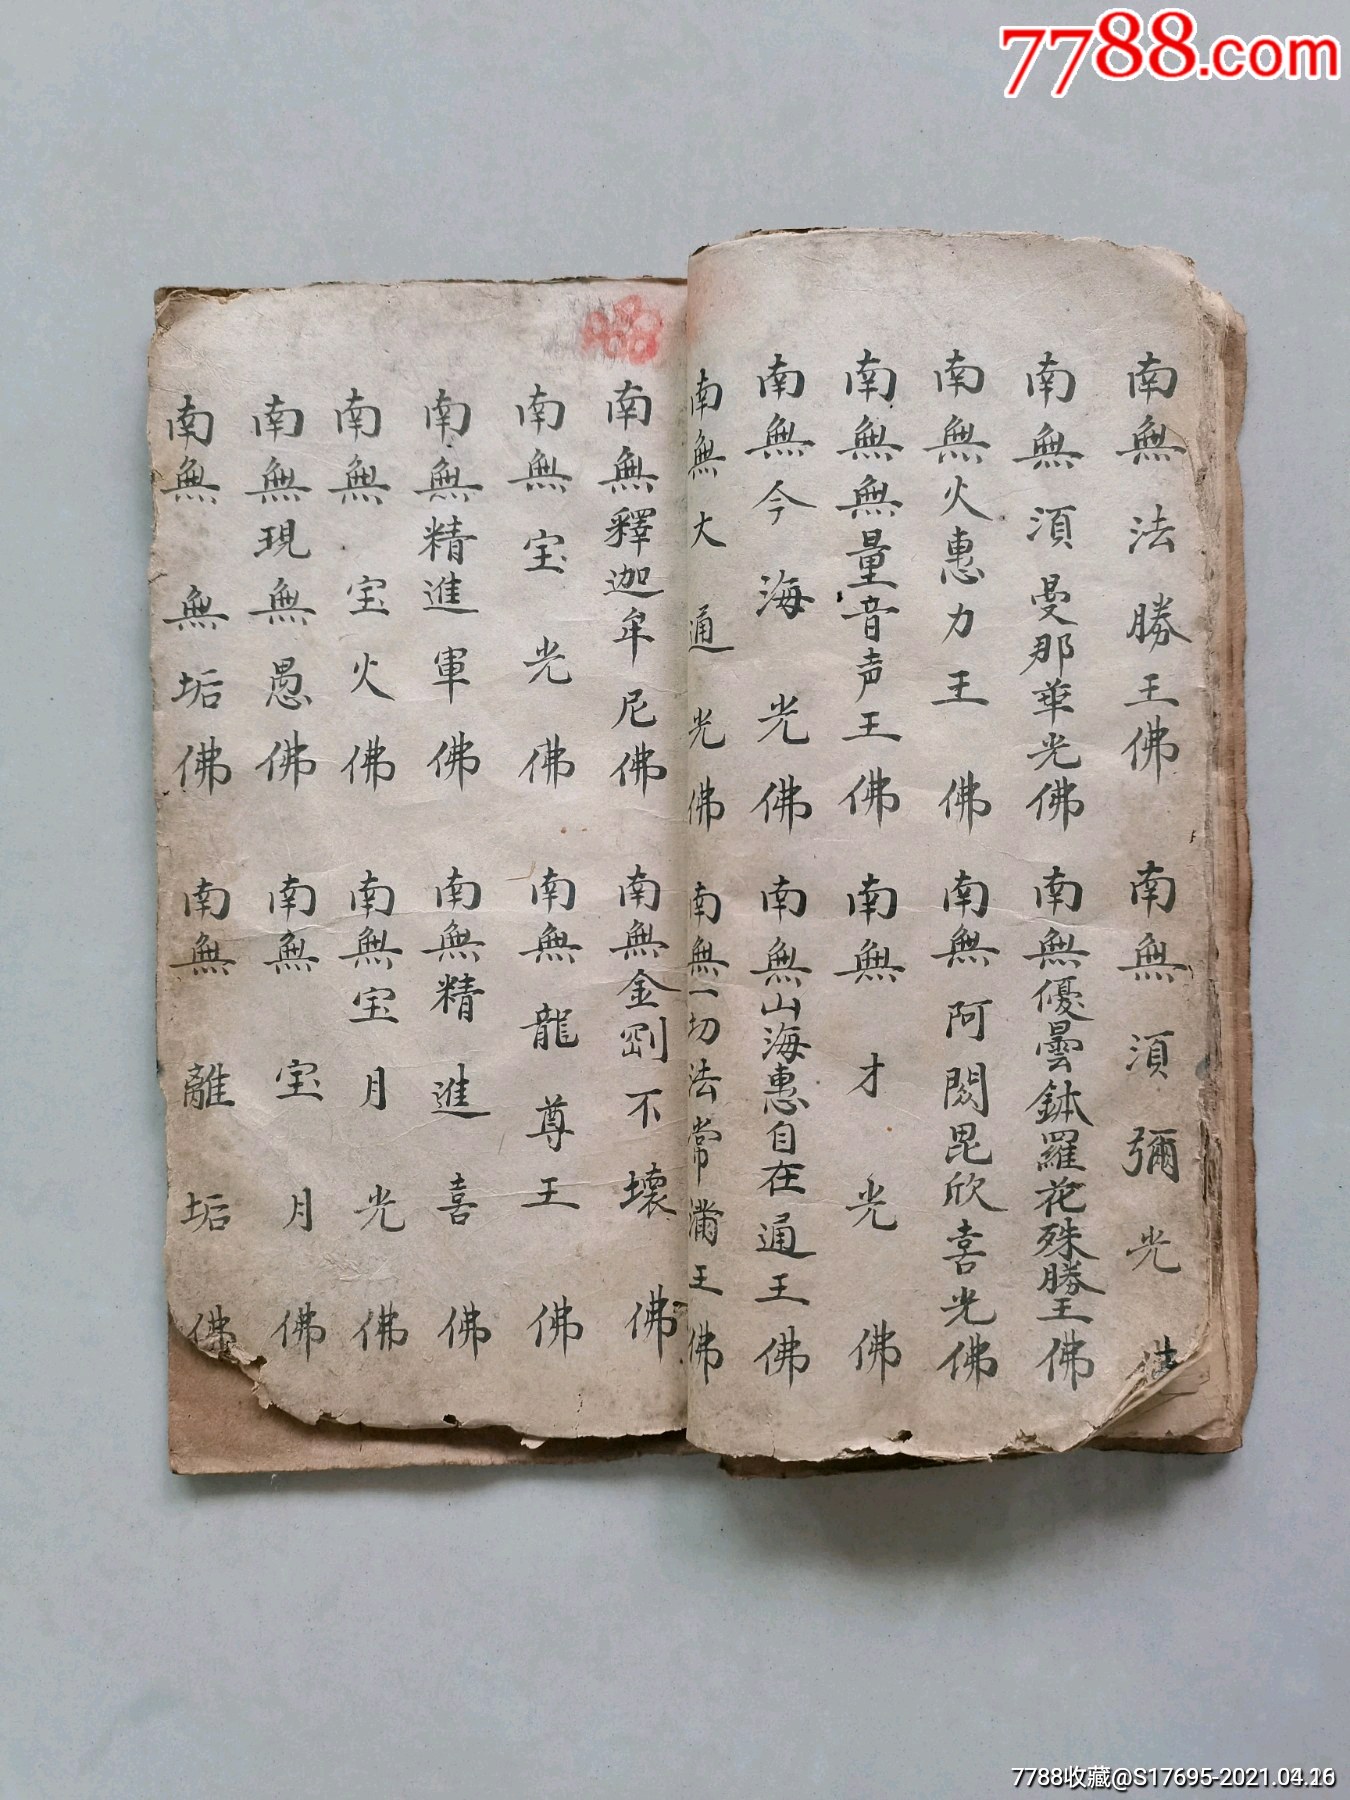 7788.com
南無法勝王佛 南無須彌光佛
南無須曼那華光佛 南無優曇鉢羅花殊勝王佛
南無火惠力王佛 南無阿閦毘欣喜光佛
南無無量音声王佛 南無才光佛
南無今海光佛 南無山海惠自在通王佛
南無大通光佛 南無一切法常滿王佛
南無釋迦牟尼佛 南無金剛不壞佛
南無宝光佛 南無龍尊王佛
南無精進軍佛 南無精進喜佛
南無宝火佛 南無宝月光佛
南無現無愚佛 南無宝月佛
南無無垢佛 南無離垢佛
7788收藏@S17695-2021.04.26